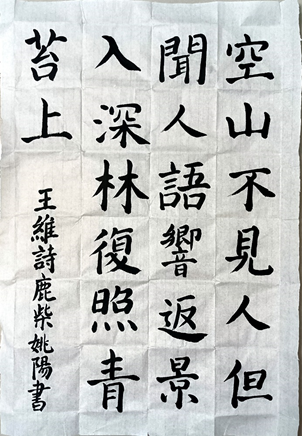 空山不見人但
聞人語響返景
入深林復照青
苔上
王維詩鹿柴姚陽書